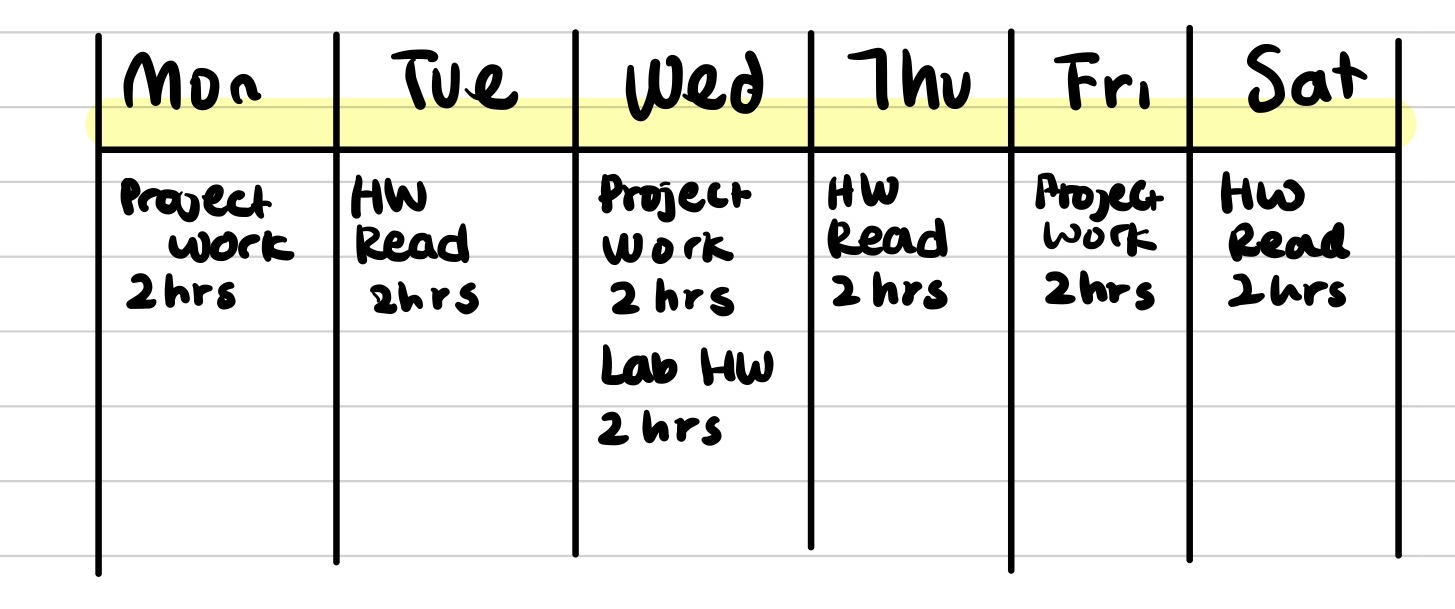 Mon Tue Wed Thu Fri Sat
Project
work
2 hrs
HW
Read
2hrs
Project
Work
2 hrs
Lab HW
2 hrs
HW
Read
2 hrs
Project
Work
2hrs
HW
Read
2hrs